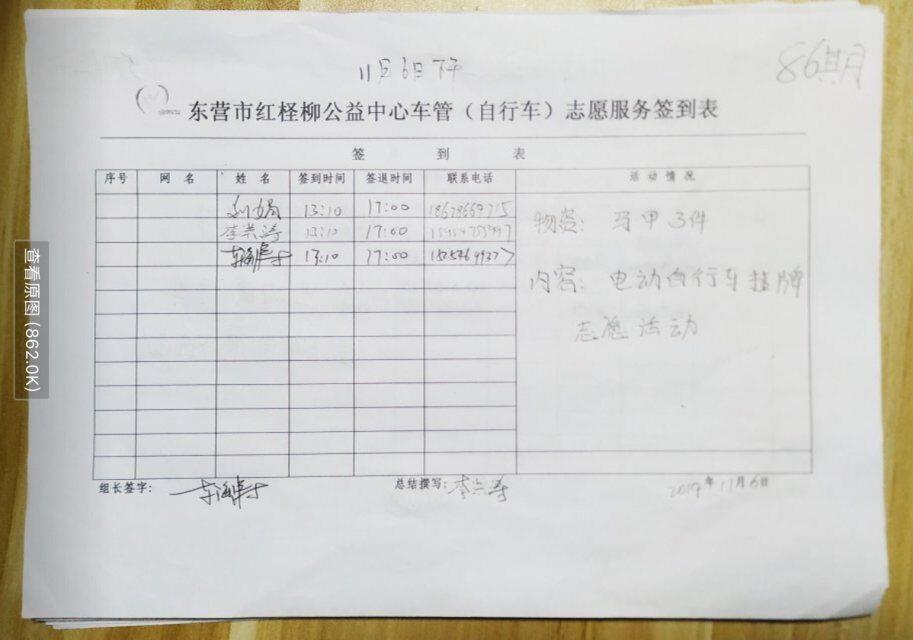 11月6日下午
86期
东营市红柽柳公益中心车管（自行车）志愿服务签到表
签 到 表
序号 网 名 姓 名 签到时间 签退时间 联系电话 活动情况
刘娟 13:10 17:00 18678669715
李兰涛 13:10 17:00
13:10 17:00
物资: 马甲3件
内容: 电动自行车挂牌
志愿活动
组长签字: 总结撰写: 李兰涛 2019年11月6日
查看原图 (862.0K)